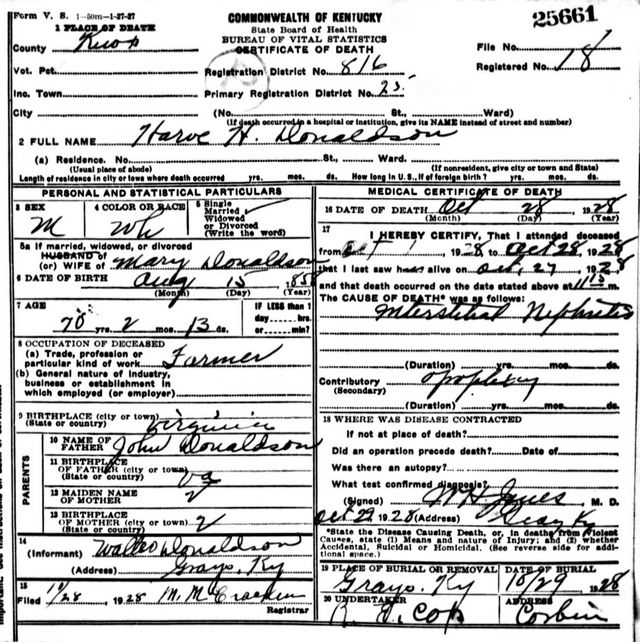 Form V. S. 1-50m-1-27-27
1 PLACE OF DEATH
COMMONWEALTH OF KENTUCKY
State Board of Health
BUREAU OF VITAL STATISTICS
CERTIFICATE OF DEATH
25661
File No.
County Knox
Registered No. 18
Vot. Pct. Registration District No. 816
Inc. Town Primary Registration District No. 25
City (No. St., Ward)
(If death occurred in a hospital or institution, give its NAME instead of street and number)
2 FULL NAME Harve H. Donaldson
(a) Residence. No. St., Ward.
(Usual place of abode) (If nonresident, give city or town and State)
Length of residence in city or town where death occurred yrs. mos. ds. How long in U. S., if of foreign birth? yrs. mos. ds.
PERSONAL AND STATISTICAL PARTICULARS
3 SEX
M
4 COLOR OR RACE
Wh
5 Single
Married
Widowed
or Divorced
(Write the word)
5a If married, widowed, or divorced
HUSBAND of
(or) WIFE of Mary Donaldson
6 DATE OF BIRTH Aug 15 1858
(Month) (Day) (Year)
7 AGE
70 yrs. 2 mos. 13 ds.
IF LESS than 1
day....hrs.
or....min?
8 OCCUPATION OF DECEASED
(a) Trade, profession or
particular kind of work Farmer
(b) General nature of Industry,
business or establishment in
which employed (or employer)
9 BIRTHPLACE (city or town)
(State or country) Virginia
PARENTS
10 NAME OF
FATHER John Donaldson
11 BIRTHPLACE
OF FATHER (city or town)
(State or country) Va
12 MAIDEN NAME
OF MOTHER
13 BIRTHPLACE
OF MOTHER (city or town)
(State or country)
14
(Informant) Walter Donaldson
Grays, Ky
15
Filed 10/28 1928
Registrar
MEDICAL CERTIFICATE OF DEATH
16 DATE OF DEATH Oct 28 1928
(Month) (Day) (Year)
17
I HEREBY CERTIFY, That I attended deceased
from Oct 1 1928 to Oct 28, 1928
that I last saw h alive on Oct, 27 1928
and that death occurred on the date stated above at m.
The CAUSE OF DEATH* was as follows:
Interstitial Nephritis
(Duration) yrs. mos. ds.
Contributory Apoplexy
(Secondary)
(Duration) yrs. mos. ds.
18 WHERE WAS DISEASE CONTRACTED
If not at place of death?
Did an operation precede death? Date of
Was there an autopsy?
What test confirmed diagnosis?
(Signed) W H Jones M. D.
Oct 29 1928 (Address) Gray Ky
*State the Disease Causing Death, or, in deaths from Violent
Causes, state (1) Means and nature of Injury; and (2) whether
Accidental, Suicidal or Homicidal. (See reverse side for addi-
tional space.)
19 PLACE OF BURIAL OR REMOVAL DATE OF BURIAL
Grays, Ky 10/29 1928
20 UNDERTAKER ADDRESS
Corbin